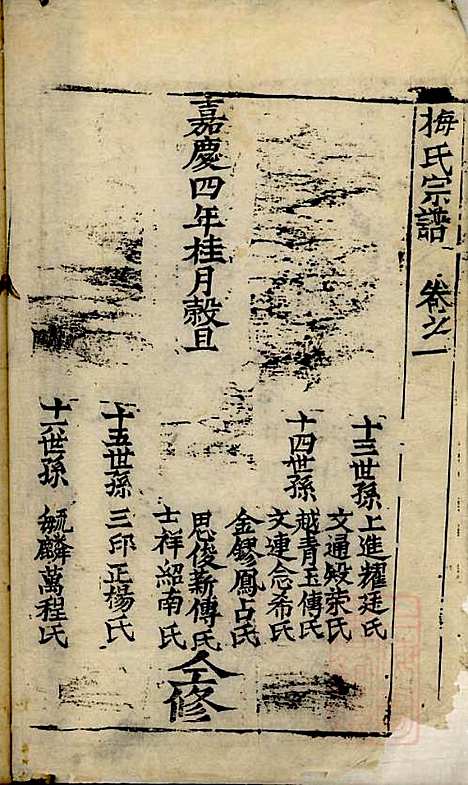 梅氏宗譜 卷之一
十三世孫 上進耀廷氏
文通殿荣氏
十四世孫 越青玉傳氏
文連念希氏
金鏐鳳占氏
嘉慶四年桂月穀旦
思俊薪傳氏
仝修
士祥紹南氏
十五世孫 三邱正楊氏
十六世孫 毓麟萬程氏